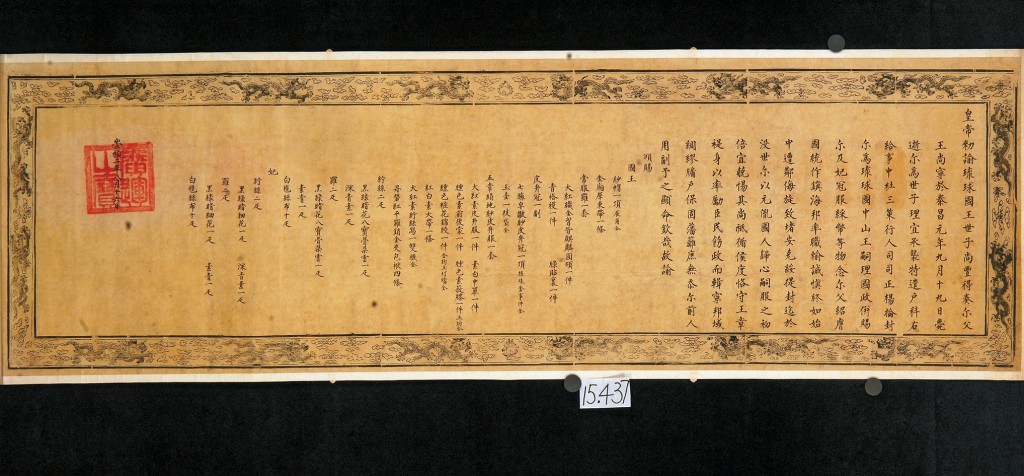 皇帝勑諭琉球國王世子尚豐得奏尔父
王尚寧於泰昌元年九月十九日薨
逝尔為世子理宜承襲特遣戶科右
給事中杜三策行人司司正楊掄封
尔為琉球國中山王嗣理國政併賜
尔及妃冠服綵幣等物念尔父紹膺
國統作鎮海邦率職輸誠慎終如始
中遭鄰侮旋致堵安克紋從封迄於
浸世尔以元胤國人歸心嗣服之初
倍宜兢惕其尚祗循侯度恪守王章
禔身以率勵臣民飭政而輯寧邦域
綢繆牖戶保固藩籬庶無忝尔前人
用副予之顯命欽哉故諭
頒賜
國王
紗帽一頂展角全
金廂犀束帶一條
常服羅一套
大紅織金胷背麒麟圓領一件
青褡穫一件 綠貼裏一件
皮弁冠一副
七旒皁皺紗皮弁冠一頂旒珠金事件全
玉圭一枝袋全
五章絹地紗皮弁服一套
大紅素皮弁服一件 素白中單一件
纁色素前後裳一件 纁色素蔽膝一件玉鈎全
纁色粧花錦綬一件金鈎玉玎璫全
紅白素大帶一條
大紅素紵絲舄一雙襪全
丹礬紅平羅銷金夾包袱四條
紵絲二疋
黑綠暗花八寶骨朵雲一疋
深青素一疋
羅二疋
黑綠暗花八寶骨朵雲一疋
青素一疋
白氁絲布十疋
妃
紵絲二疋
黑綠暗細花一疋 深青素一疋
羅二疋
黑綠暗細花一疋 青素一疋
白氁絲布十疋
廣運之寶